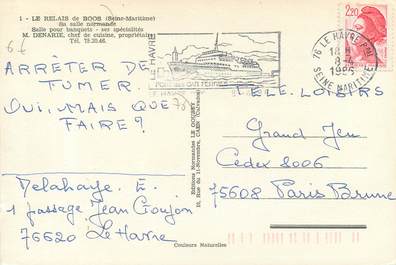 1 - LE RELAIS de BOOS (Seine-Maritime)
Sa salle normande
Salle pour banquets - ses spécialités
M. DENARIE, chef de cuisine, propriétaire
Tél. 75.20.46
6 €
ARRETER DE
TUMER.
OUI, MAIS QUE
FAIRE?
Delahaye. E
1 passage Jean Goujon
76620 Le Havre
Editions Normandes LE GOUBEY
16, Rue du 11-Novembre, CAEN (Calvados)
LE HAVRE
2,20
76 LE HAVRE PPAL
18 H
1985
SEINE MARITIME
TELE. LOISIRS
Grand Jeu
Cedex 2006
75608 Paris Brune
Couleurs Naturelles